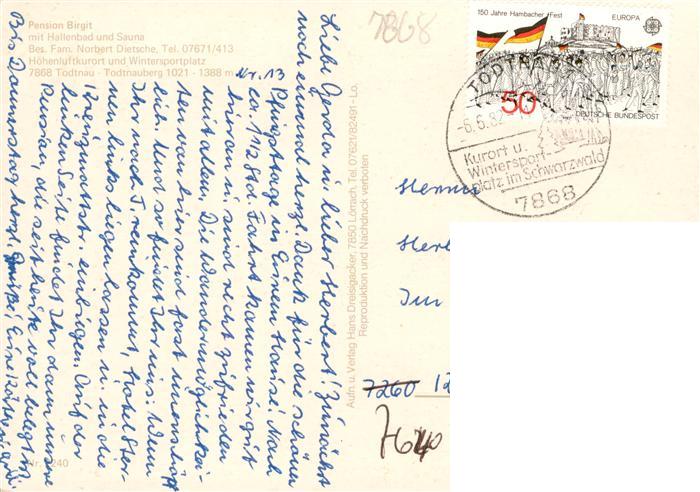 Pension Birgit
mit Hallenbad und Sauna
Bes. Fam. Norbert Dietsche, Tel. 07671/413
Höhenluftkurort und Wintersportplatz
7868 Todtnau - Todtnauberg 1021 - 1388 m
Nr. 13
Liebe Gerda u. lieber Herbert! Zunächst
noch einmal herzl. Dank für die schönen
Pfingsttage in Eurem Hause. Nach
ca. 1 1/2 Std. Fahrt kamen wir gut
hier an u. sind recht zufrieden
mit allem. Die Wandermöglichkei-
ten v. hier sind fast unerschöpf-
lich. Und so findet Ihr uns: Wenn
Ihr nach T. reinkommt, Hotel Ster-
nen links liegen lassen u. in die
einbiegen. Auf der
linken Seite findet Ihr dann unsere
Pension, die seit heute voll belegt ist.
Bis Donnerstag herzl. Grüße! Eure
Nr. 240
Aufn. u. Verlag Hans Dreisigacker, 7850 Lörrach, Tel. 07621/82491 - Lo.
Reproduktion und Nachdruck verboten
7868
150 Jahre Hambacher Fest
EUROPA
CEPT
50
DEUTSCHE BUNDESPOST
TODTNAU
-6.6.82
Kurort u.
Wintersport-
platz im Schwarzwald
7868
Im
7260 12
7640